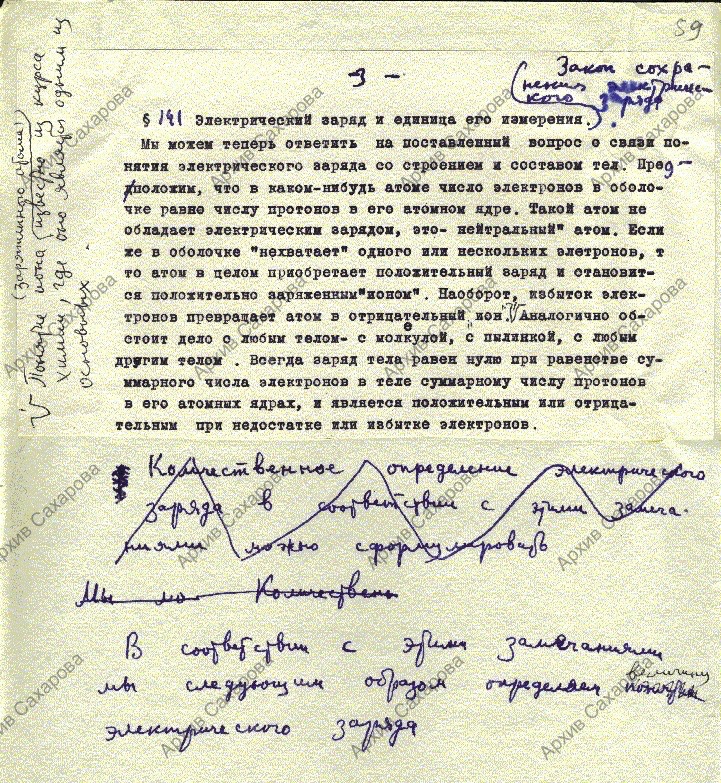 59
- 3 -
Закон сохра-
нения электричес-
кого заряда
§ 141 Электрический заряд и единица его измерения.
Мы можем теперь ответить на поставленный вопрос о связи по-
нятия электрического заряда со строением и составом тел. Пред-
положим, что в каком-нибудь атоме число электронов в оболо-
чке равно числу протонов в его атомном ядре. Такой атом не
обладает электрическим зарядом, это- нейтральный" атом. Если
же в оболочке "нехватает" одного или нескольких элетронов, т
то атом в целом приобретает положительный заряд и становит-
ся положительно заряженным"ионом". Наоборот, избыток элек-
тронов превращает атом в отрицательный ион. V Аналогично об-
стоит дело с любым телом- с молекулой, с пылинкой, с любым
другим телом . Всегда заряд тела равен нулю при равенстве су-
ммарного числа электронов в теле суммарному числу протонов
в его атомных ядрах, и является положительным или отрица-
тельным при недостатке или избытке электронов.
V Понятие иона (известно из курса
химии, где оно является одним из
основных.
Количественное определение электрического
заряда в соответствии с этими замеча-
ниями можно сформулировать
Мы мо Количествень
В соответствии с этими замечаниями
мы следующим образом определяем величину
электрического заряда
Архив Сахарова